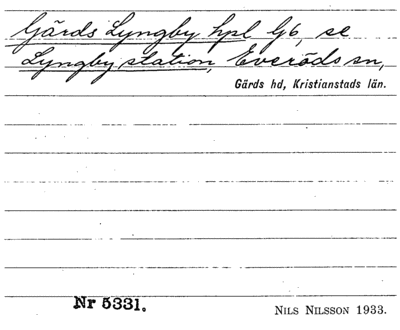 Gärds Lyngby hpl G6, se
Lyngby station, Everöds sn,
Gärds hd, Kristianstads län.
Nr 5331.
NILS NILSSON 1933.